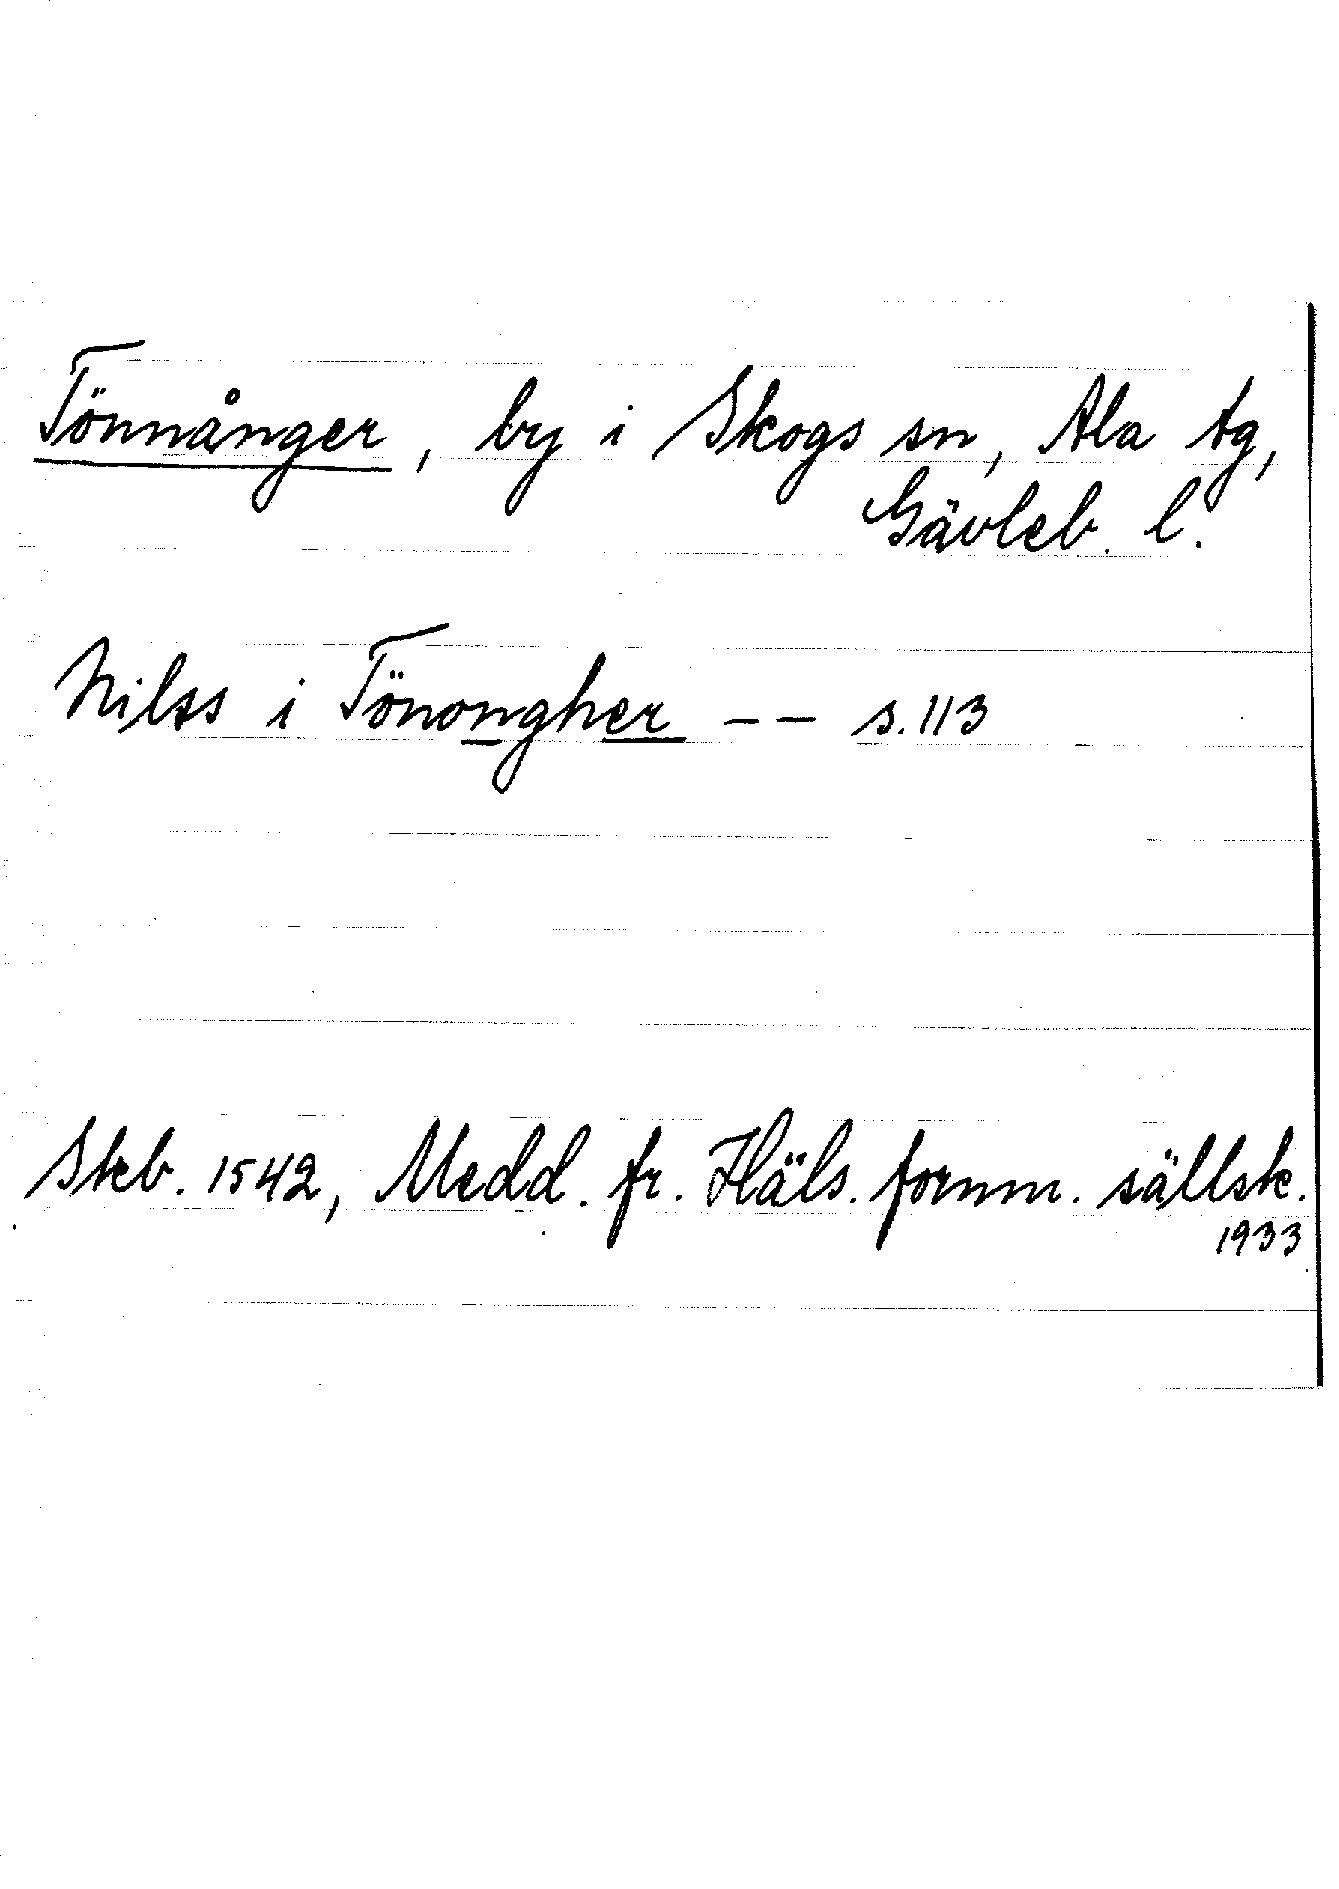 Tönnånger, by i Skogs sn, Ala tg,
Gävleb. l.
Nilss i Tönongher -- s. 113
Skb. 1542, Medd. fr. Häls. fornm. sällsk.
1933